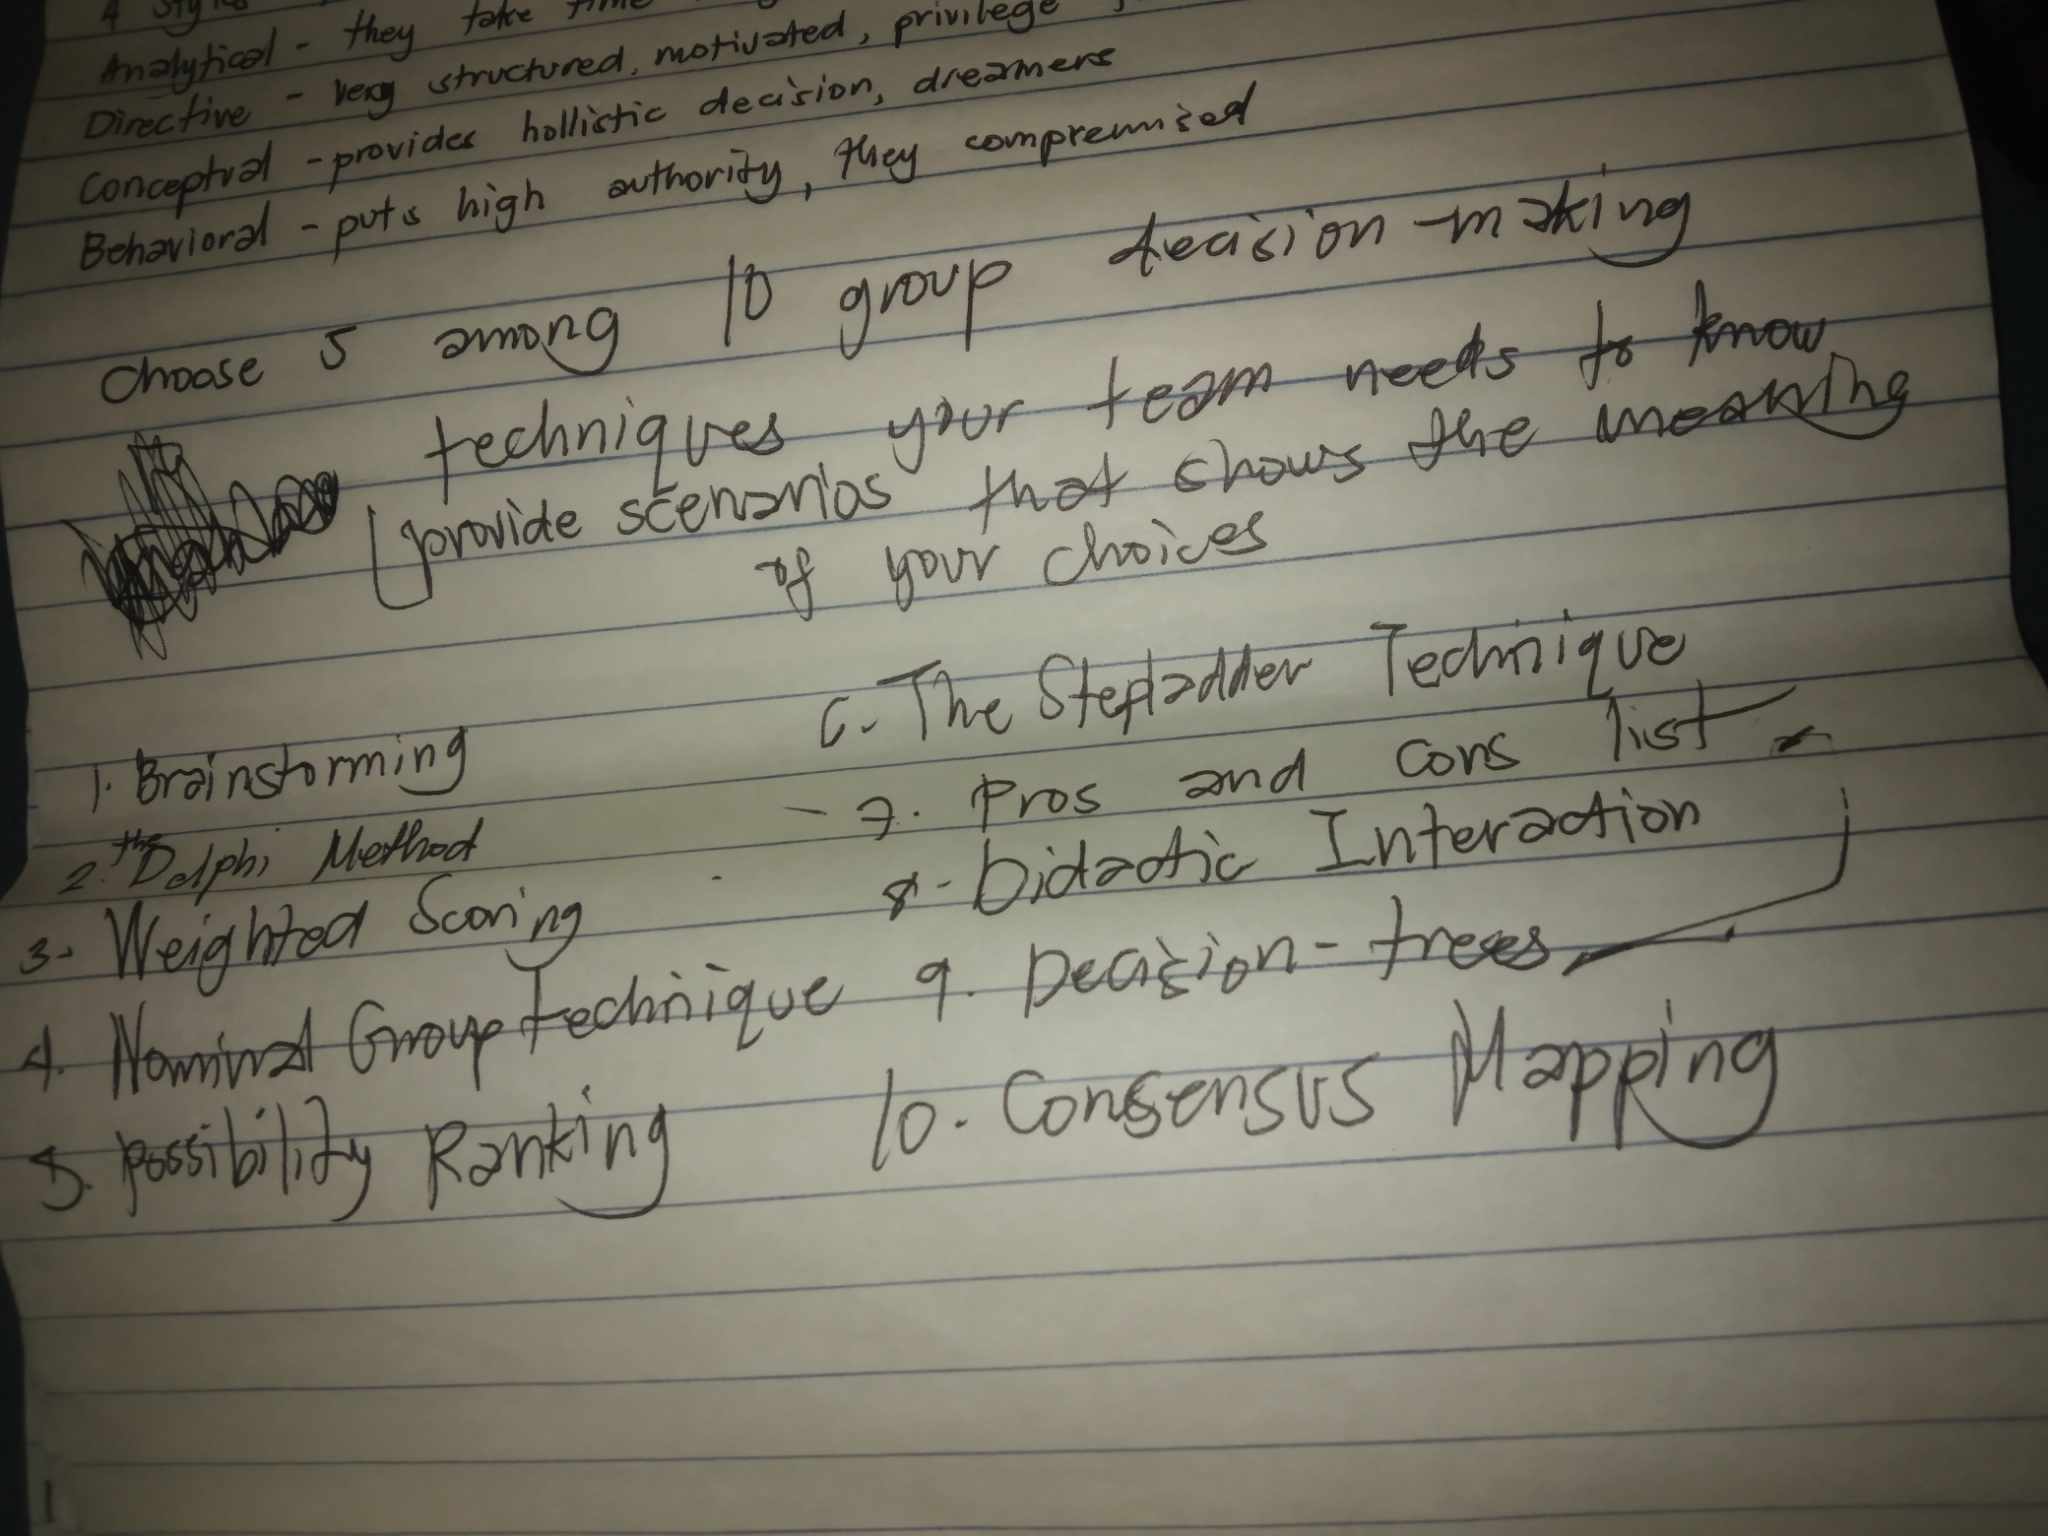 4 styles
Analytical - they take time
Directive - very structured, motivated, privilege
Conceptual - provides hollistic decision, dreamers
Behavioral - puts high authority, they compremised
Choose 5 among 10 group decision-making
techniques your team needs to know
provide scenarios that shows the meaning
of your choices
1. Brainstorming
2. the Delphi Method
3. Weighted Scoring
4. Nominal Group technique
5. Possibility Ranking
6. The Stepladder Technique
7. Pros and cons list
8. Didactic Interaction
9. Decision-trees
10. Consensus Mapping